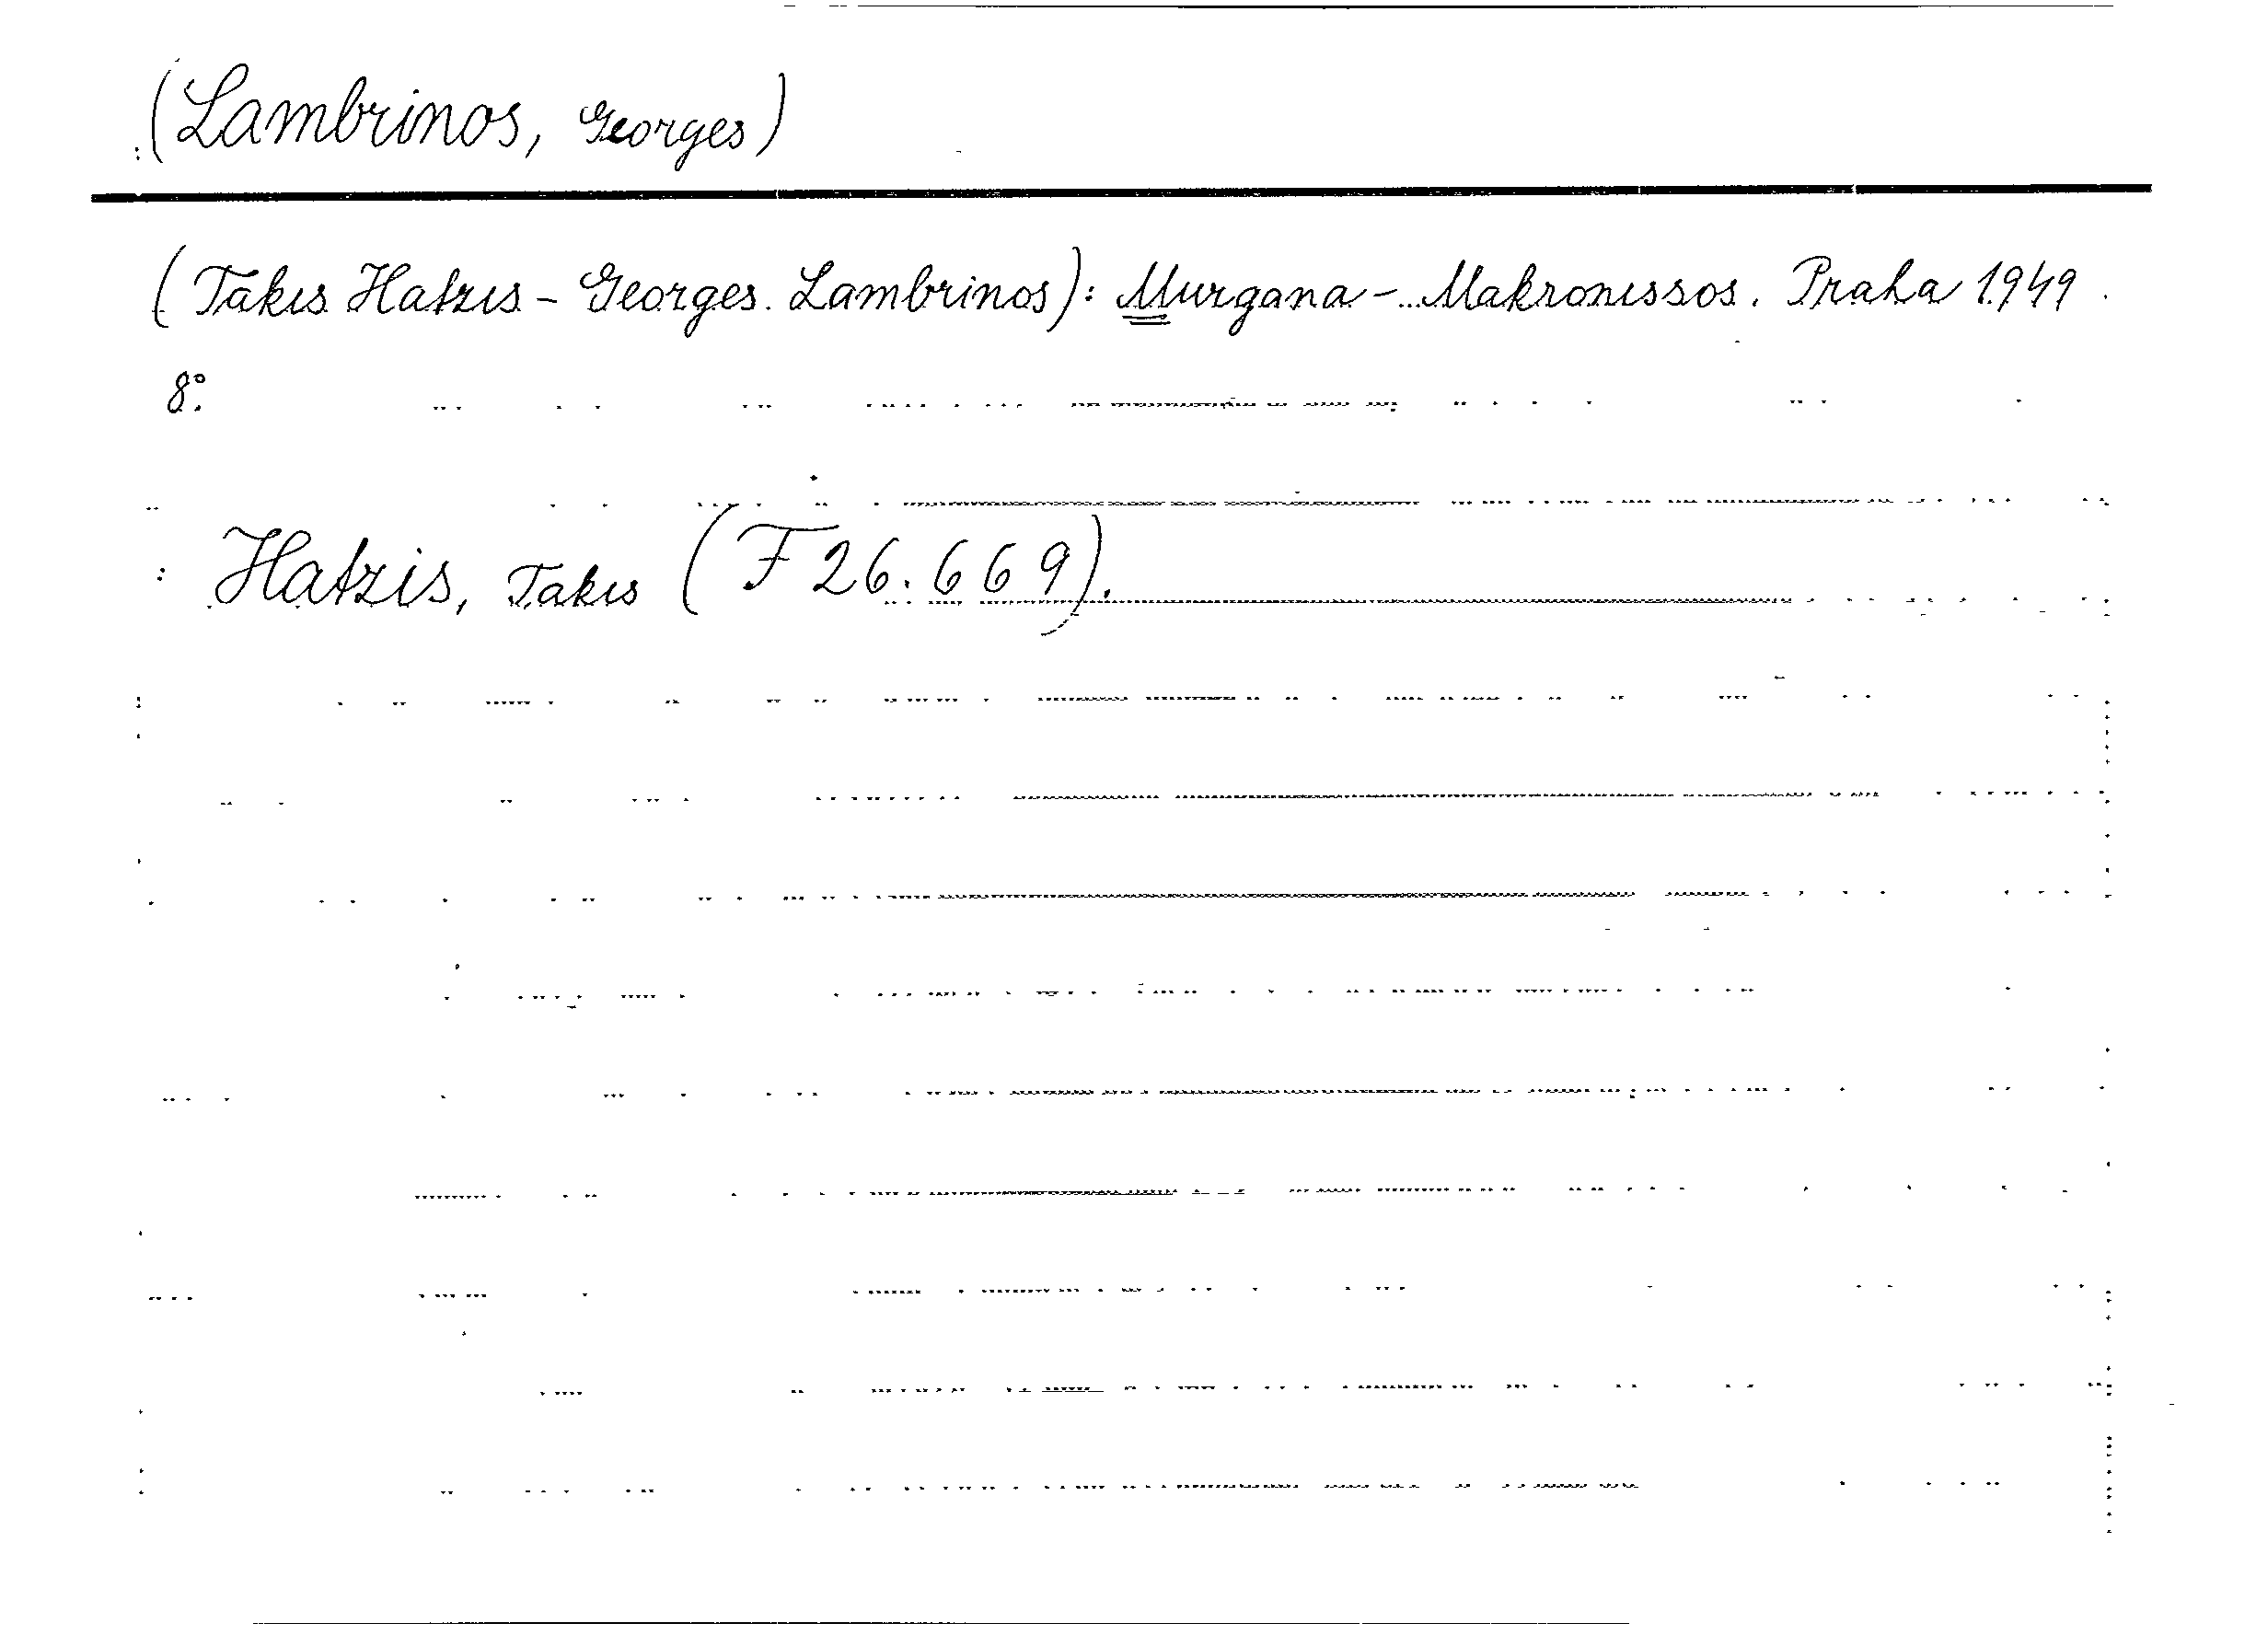 (Lambrinos, Georges)
(Takis Hatzis - Georges Lambrinos): Murgana - Makronissos. Praha 1949.
8°.
Hatzis, Takis (F 26.669).